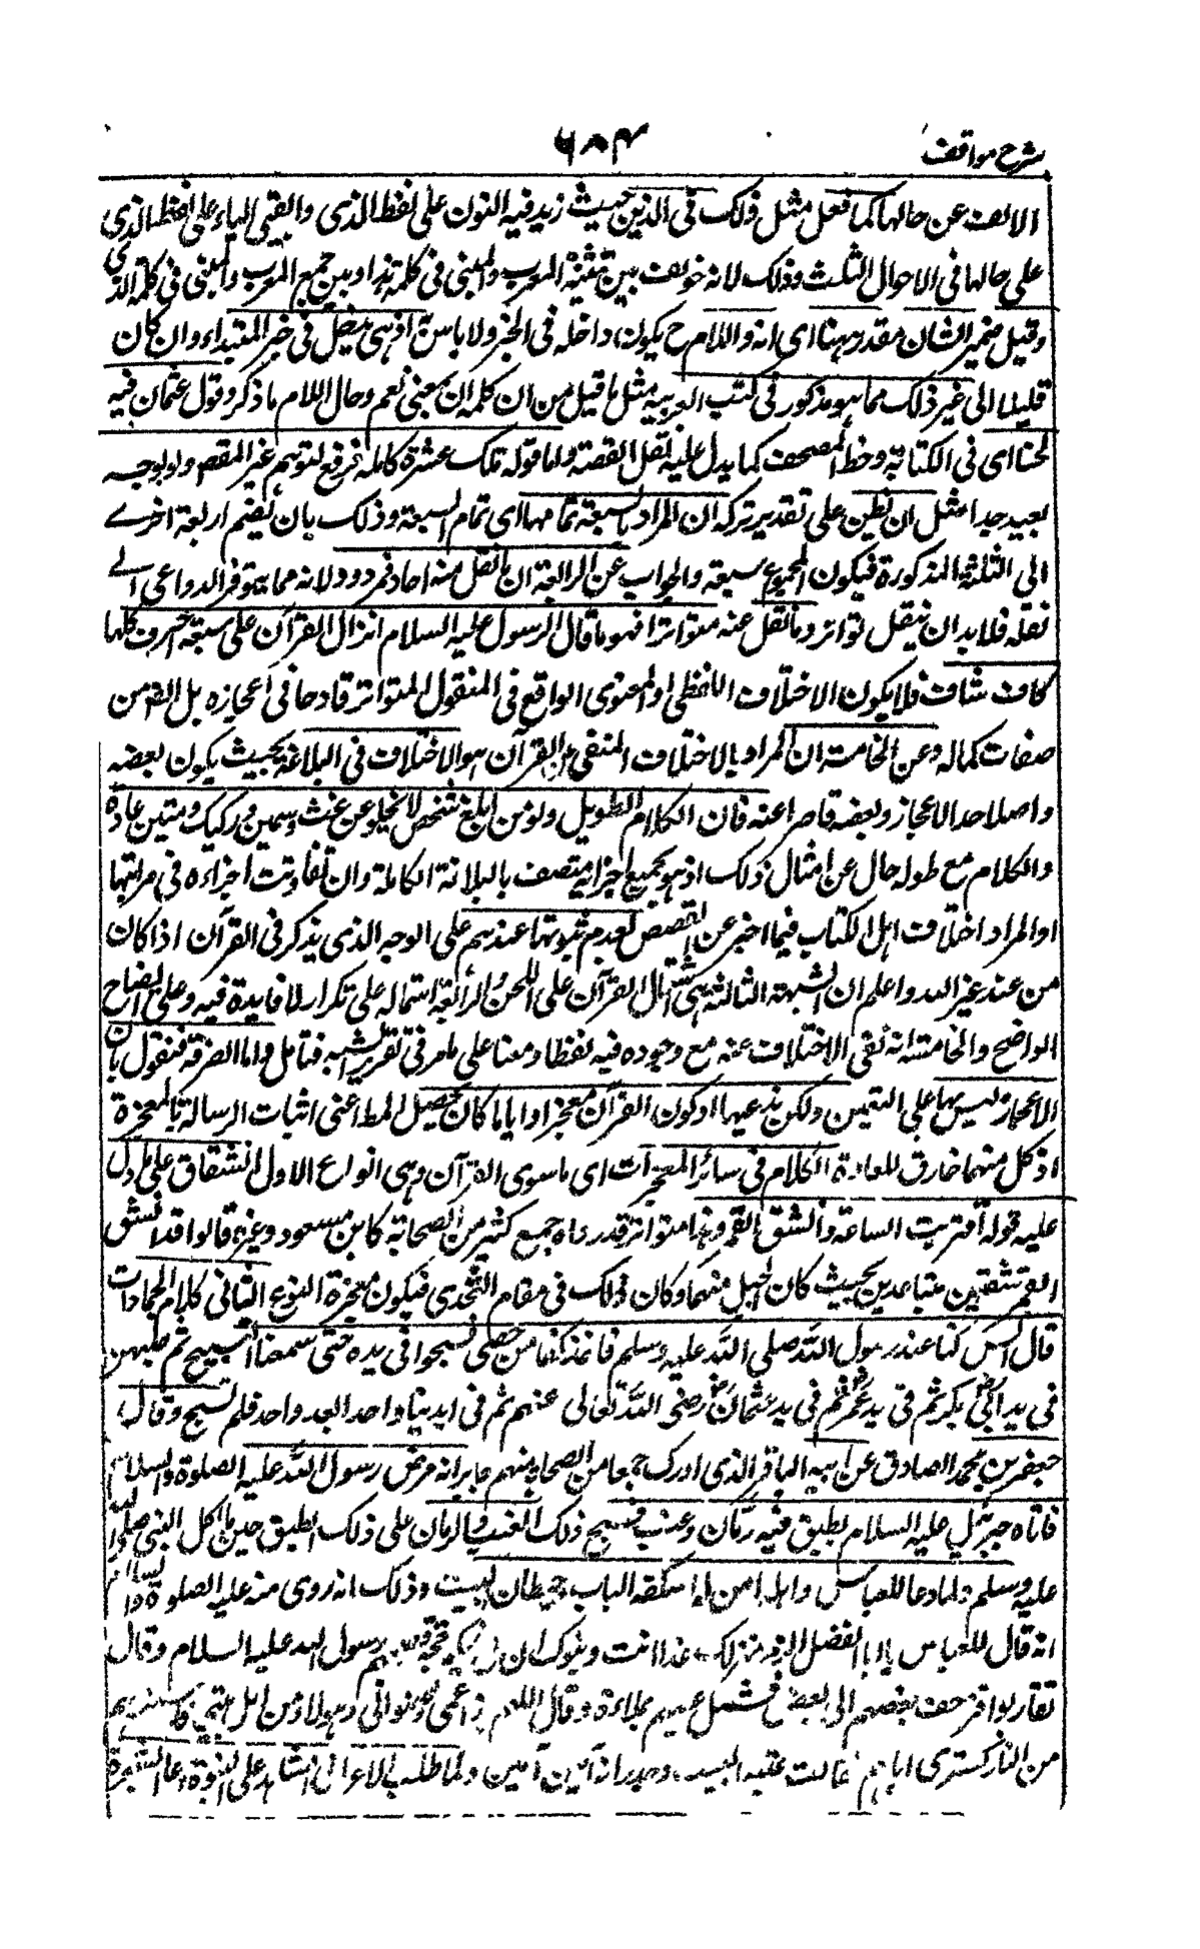 شرح مواقف
٦٨٣
الالف عن حالها كما فعل مثل ذلك فى الذين حيث زيد فيه النون على لفظ الذى وابقى الياء على لفظ الذى
على حالها فى الاحوال الثلث وذلك لانه خولف بين تثنية المعرب والمبنى فى كلمة هذا وبين جمع المعرب والمبنى فى كلمة الذى
وقيل ضمير الشان مقدر ههنا اى انه واللام ح يكون داخله فى الخبر ولا باس به اذ هى يدخل فى خبر المبتداء وان كان
قليلا الى غير ذلك مما هو مذكور فى كتب العربيه مثل ما قيل من ان كلمة ان بمعنى نعم وحال اللام ما ذكر وقول عثمان فيه
لحنا اى فى الكتابة وخط المصحف كما يدل عليه نقل القصة واما قوله تلك عشرة كاملة فرفع لتوهم غير المقصو ولو بوجه
بعيد جدا مثل ان يظن على تقدير تركه ان المراد بالسبعة تمامها اى تمام السبعة وذلك بان يضم اربعة اخرى
الى الثلثة المذكورة فيكون المجموع سبعة والجواب عن الرابعة ان ما نقل منه احاد فمردود لانه مما يتوفر الدواعى الى
نقله فلا بد ان ينقل تواتر وما نقل عنه متواترا فهو ما قال الرسول عليه السلام انزال القرآن على سبعة احرف كلها
كاف شاف فلا يكون الاختلاف اللفظى او المعنوى الواقع فى المنقول المتواتر قادحا فى اعجازه بل هو من
صفات كماله وعن الخامسة ان المراد بالاختلاف المنفى عن القرآن هو الاختلاف فى البلاغة بحيث يكون بعضه
واصلا حد الاعجاز وبعضه قاصرا عنه فان الكلام الطويل ولو من ابلغ شخص لا يخلو عن غث وسمين وركيك ومتين عادة
والكلام مع طوله خال عن امثال ذلك اذ هو بجميع اجزائه متصف بالبلاغة الكاملة وان تفاوتت اجزاءه فى مراتبها
او المراد اختلاف اهل الكتاب فيما اخبر عن القصص لعدم ثبوتها عندهم على الوجه الذى يذكر فى القرآن اذا كان
من عند غير الله واعلم ان الشبهة الثالثة هى اشتمال القرآن على اللحن والرابعة اشتماله على تكرار لا فايدة فيه وعلى ايضاح
الواضح والخامسة انه نفى الاختلاف عنه مع وجوده فيه لفظا ومعنا على ما مر فى تقرير الشبه فتامل واما الصرفة فنقول بان
الاعجاز ليس بها على التعيين ولكن ندعيها او كون القرآن معجزا وايا ما كان يحصل المط اعنى اثبات الرسالة بالمعجزة
اذ كل منهما خارق للعادة الكلام فى سائر المعجزات اى ما سوى القرآن وهى انواع الاول انشقاق على ما دل
عليه قوله اقتربت الساعة وانشق القمر وهذا متواتر قد رواه جمع كثير من الصحابة كابن مسعود وغيره قالوا قد انشق
القمر شقين متباعدين بحيث كان الجبل منهما وكان ذلك فى مقام التحدى فيكون معجزة النوع الثانى كلام الجمادات
قال انس كنا عند رسول الله صلى الله عليه وسلم فاخذ كفا من حصى فسبحوا فى يده حتى سمعنا التسبيح ثم صبهن
فى يد ابى بكر ثم فى يد عمر ثم فى يد عثمان رضى الله تعالى عنهم ثم فى ايدينا واحدا بعد واحد فلم تسبح وقال
جعفر بن محمد الصادق عن ابيه الباقر الذى ادرك جمعا من الصحابة منهم جابر انه مرض رسول الله عليه الصلوة والسلام
فاتاه جبرئيل عليه السلام بطبق فيه رمان وعنب فسبح ذلك العنب والرمان على ذلك الطبق حين ما اكل النبى صلى الله
عليه وسلم ولما دعا للعباس واهله امن له اسكفة الباب حيطان البيت وذلك انه روى منه عليه الصلوة والسلام
انه قال للعباس يا ابا الفضل الزم منزلك غدا انت وبنوك ان لى رسول الله عليه السلام وقال
تقاربوا فزحف بعضهم الى بعض فشمل عليهم بملاءة وقال اللهم هذا عمى وهولاء من اهل بيتى
من النار كسترى اياهم فقالت عتبة البيت وجدرانه آمين آمين ولما طلب الاعرابى الشاهد على النبوة دعا الشجرة